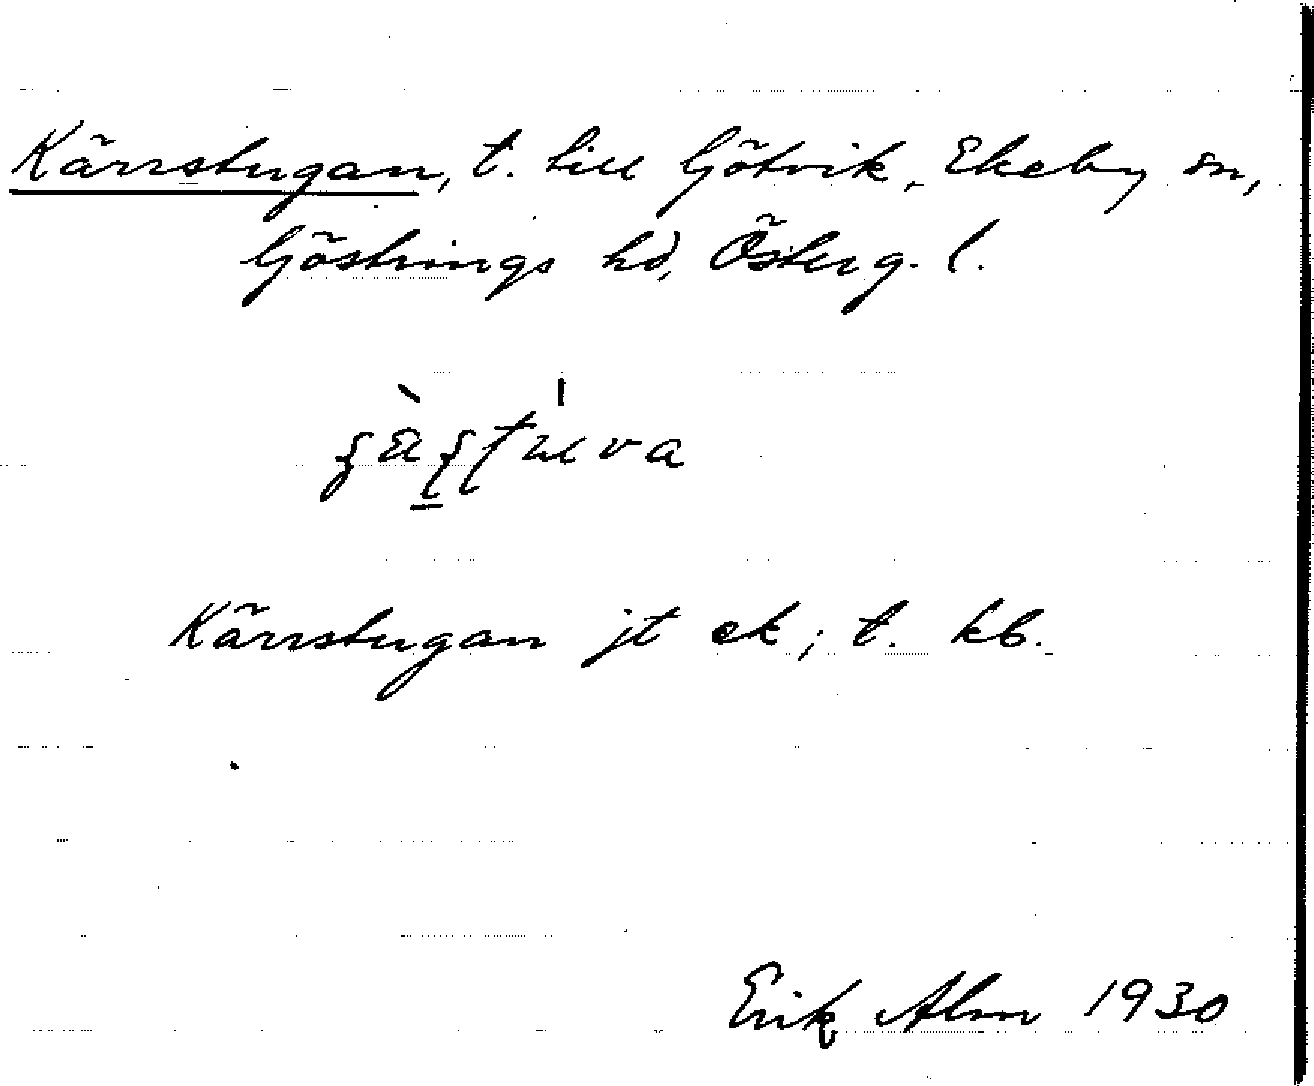 Kärrstugan, t. till Götvik, Ekeby sn,
Göstrings hd, Österg. l.
Kärrstugan jt ek; t. kb.
Erik Alm 1930